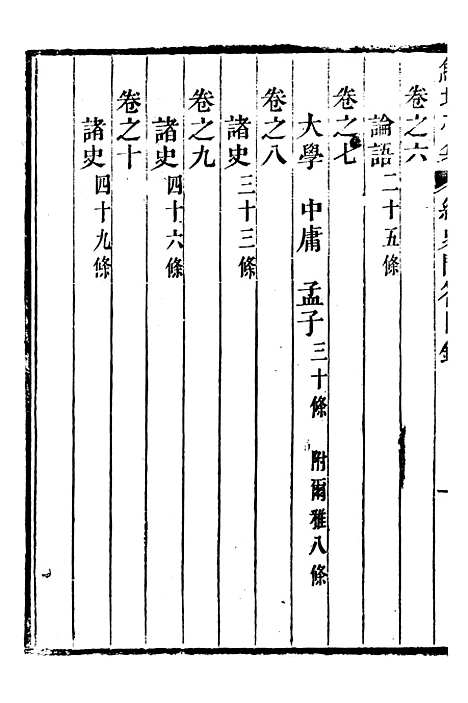 卷之六
論語二十五條
卷之七
大學 中庸 孟子三十條 附爾雅八條
卷之八
諸史三十三條
卷之九
諸史四十六條
卷之十
諸史四十九條